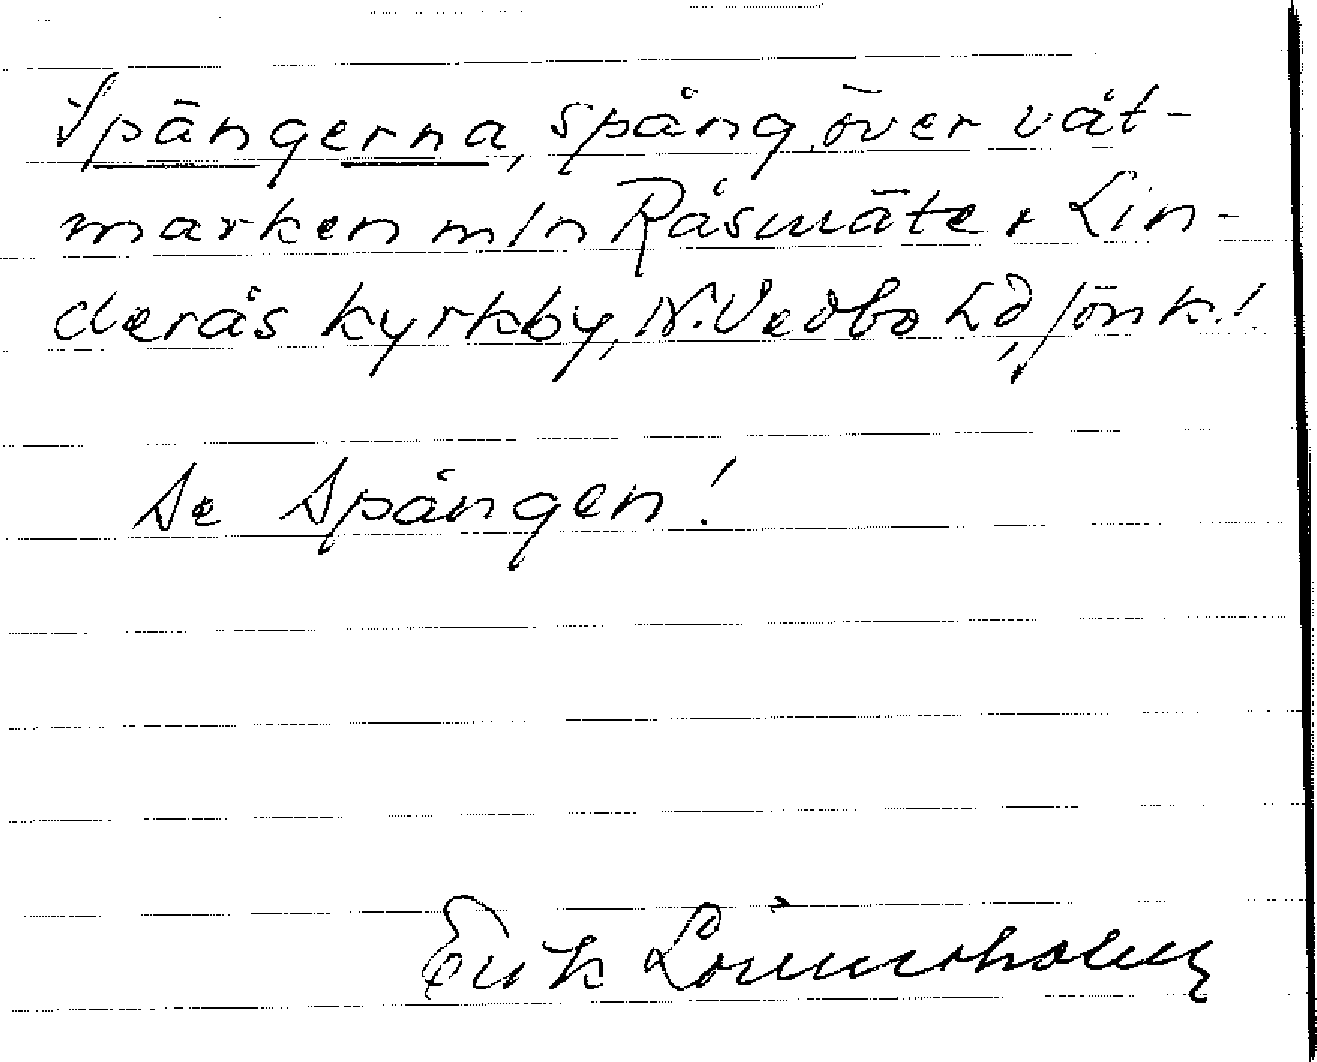 Spängerna, spång över våt-
marken m/n Råsmäte & Lin-
derås kyrkby, N. Vedbo hd, Jönk.!
Se Spången!
Erik Lönnerholm